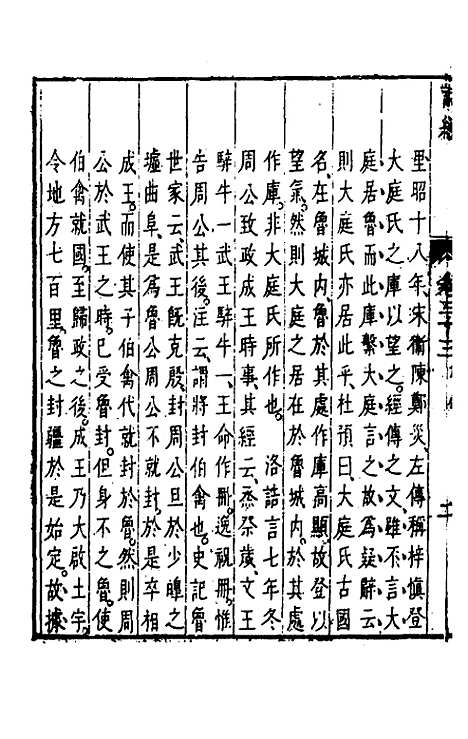 里昭十八年宋衞陳鄭災左傳稱梓慎登
大庭氏之庫以望之經傳之文雖不言大
庭居魯而此庫繫大庭言之故爲疑辭云
則大庭氏亦居此乎杜預曰大庭氏古國
名在魯城内魯於其處作庫高顯故登以
望氣然則大庭之居在於魯城内於其處
作庫非大庭氏所作也 洛誥言七年冬
周公致政成王時事其經云烝祭歲文王
騂牛一武王騂牛一王命作冊逸祝冊惟
告周公其後注云謂將封伯禽也史記魯
世家云武王旣克殷封周公旦於少皡之
墟曲阜是爲魯公周公不就封於是卒相
成王而使其子伯禽代就封於魯然則周
公於武王之時已受魯封但身不之魯使
伯禽就國至歸政之後成王乃大啟土宇
令地方七百里魯之封疆於是始定故據